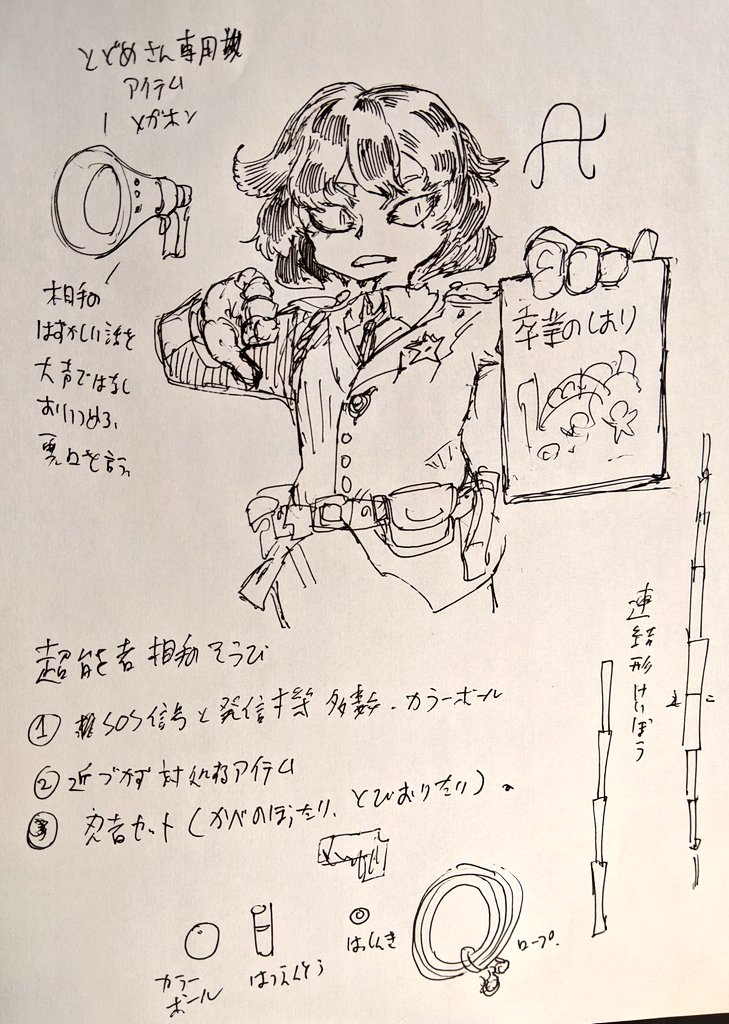 とどめさん専用
アイテム
メガホン
相手の
はずかしい話を
大声ではなし
おいつめる、
悪口を言う。
卒業のしおり
連結形けいぼう
超能者相手そうび
① SOS信号と発信機多数・カラーボール
② 近づかず対処するアイテム
③ 忍者セット(かべのぼったり、とびおりたり)。
カラー
ボール
はつえんとう
はっしんき
ロープ.